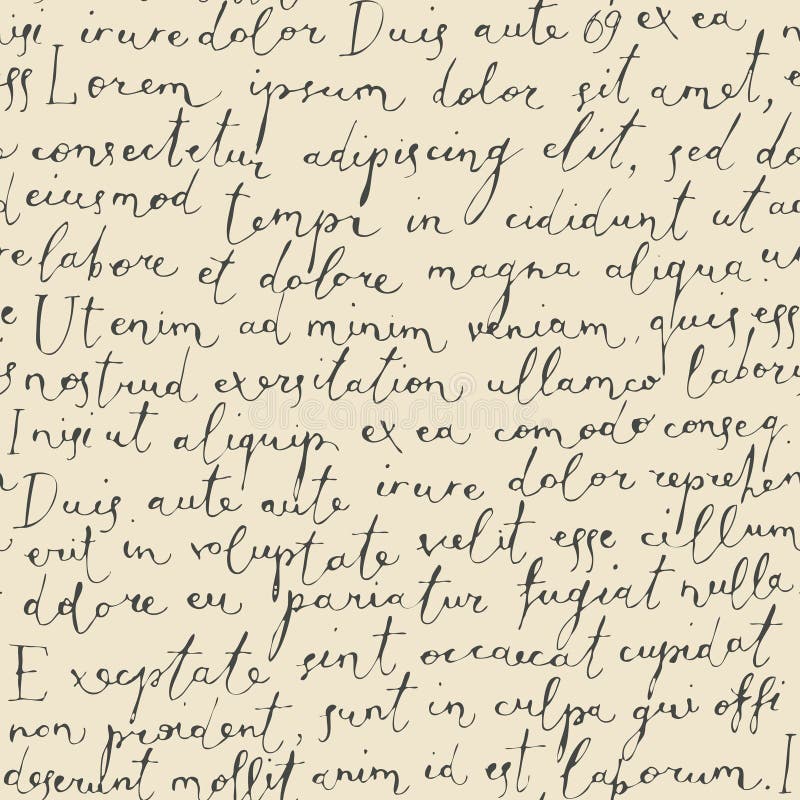 nisi irure dolor Duis aute 69 ex ea n
ss Lorem ipsum dolor sit amet, e
consectetur adipiscing elit, sed do
d eiusmod tempr in cididunt ut ad
re labore et dolore magna aliqua un
e Ut enim ad minim veniam, quis ess
s nostrud exersitation ullamco labori
I nisi ut aliquip ex ea comodo conseq
Duis aute aute irure dolor reprehen
erit in voluptate vœlit esse cillum
dolore eu pariatur fugiat nulla
E xecptate sint occaecat cupidat
non proident, sunt in culpa qui offi
deserunt mollit anim id est laborum. I